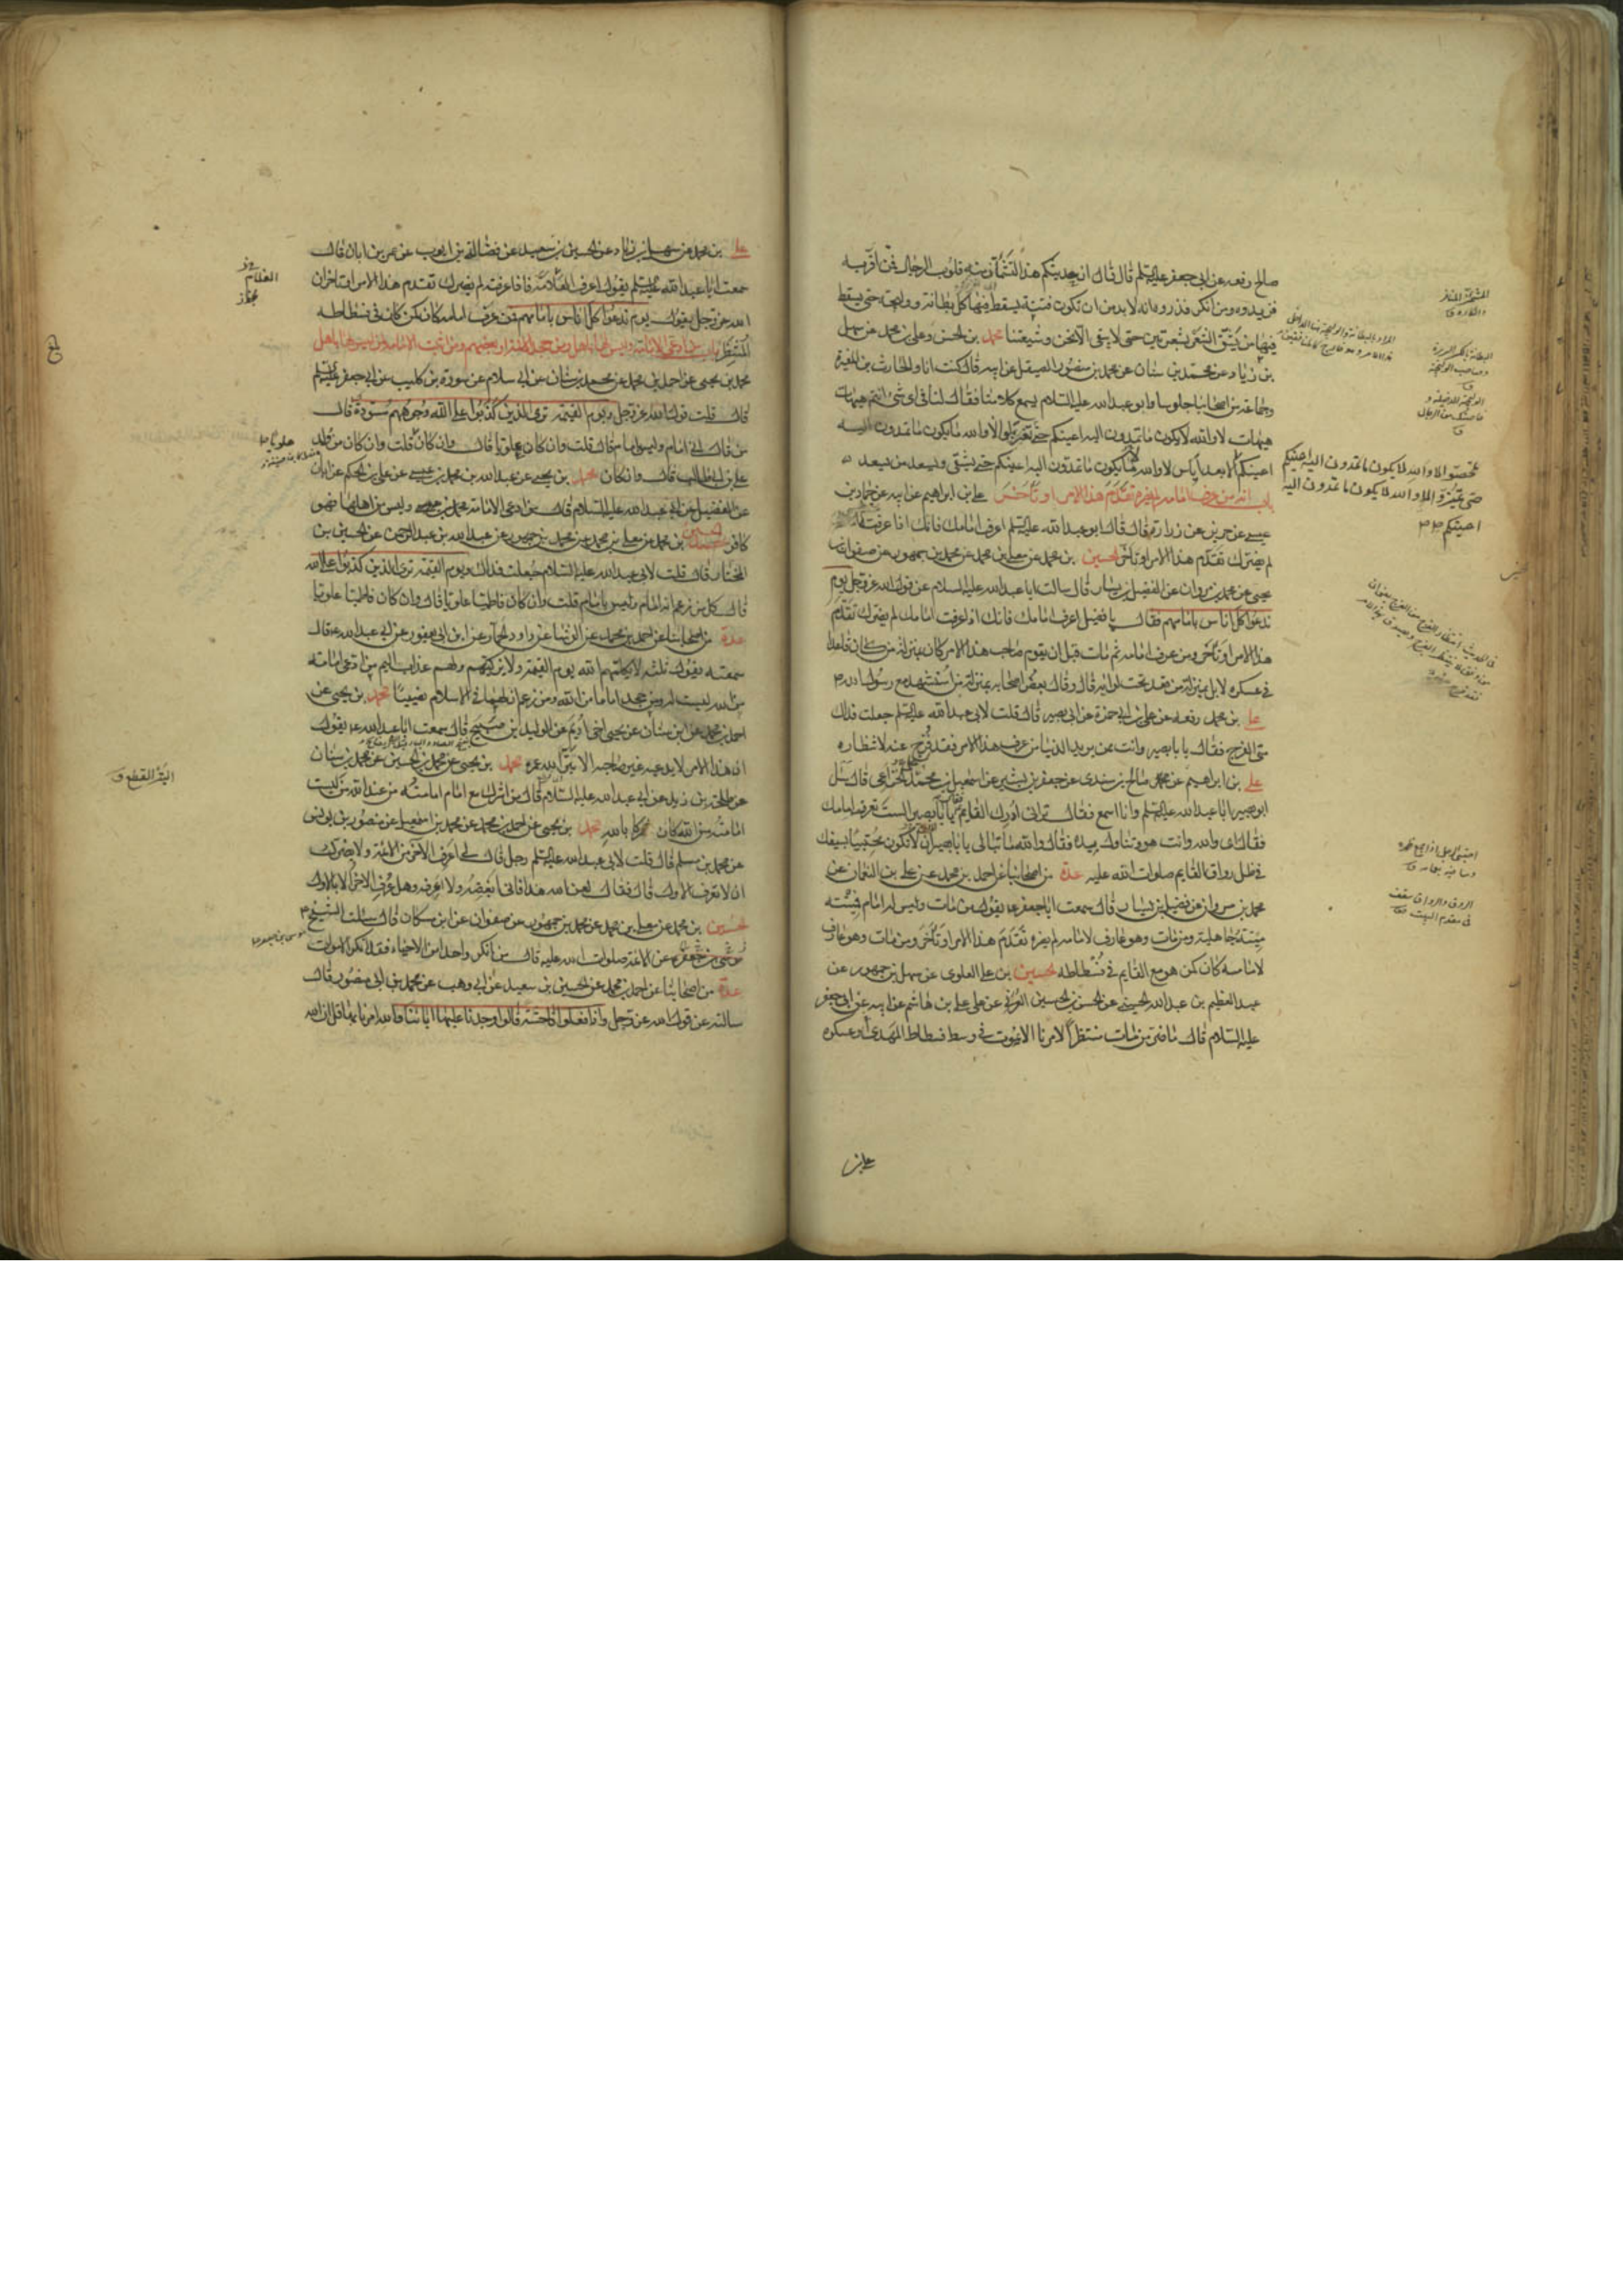 صالح رفعه عن ابى جعفر عليه السلم قال قال ان حديثكم هذا لتشمأز منه قلوب الرجال فمن اقر به
فزيدوه ومن انكر فذروه انه لا بد من ان تكون فتنة يسقط فيها كل بطانة ووليجة حتى يسقط
فيها من يشق الشعر بشعرتين حتى لا يبقى الا نحن وشيعتنا محمد بن الحسن وعلى بن محمد عن سهل
بن زياد عن محمد بن سنان عن محمد بن منصور الصيقل عن ابيه قال كنت انا والحارث بن المغيرة
وجماعة من اصحابنا جلوسا وابو عبد الله عليه السلام يسمع كلامنا فقال لنا فى اى شئ انتم هيهات
هيهات لا والله لا يكون ما تمدون اليه اعينكم حتى تغربلوا لا والله ما يكون ما تمدون اليه
اعينكم الا بعد اياس لا والله ما يكون ما تمدون اليه اعينكم حتى يشقى ويسعد من يسعد
باب انه من عرف امامه لم يضره تقدم هذا الامر او تأخر على بن ابراهيم عن ابيه عن حماد بن
عيسى عن حريز عن زرارة قال قال ابو عبد الله عليه السلم اعرف امامك فانك اذا عرفت
لم يضرك تقدم هذا الامر او تأخر الحسين بن محمد عن معلى بن محمد عن محمد بن جمهور عن صفوان بن
يحيى عن محمد بن مروان عن الفضيل بن يسار قال سالت ابا عبد الله عليه السلام عن قول الله عز وجل يوم
ندعوا كل اناس بامامهم فقال يا فضيل اعرف امامك فانك اذا عرفت امامك لم يضرك تقدم
هذا الامر او تأخر ومن عرف امامه ثم مات قبل ان يقوم صاحب هذا الامر كان بمنزلة من كان قاعدا
فى عسكره لا بل بمنزلة من قعد تحت لوائه قال وقال بعض اصحابه بمنزلة من استشهد مع رسول الله
على بن محمد رفعه عن على بن ابى حمزة عن ابى بصير قال قلت لابى عبد الله عليه السلم جعلت فداك
متى الفرج فقال يا با بصير وانت ممن يريد الدنيا من عرف هذا الامر فقد فرج عنه لانتظاره
على بن ابراهيم عن صالح بن سندى عن جعفر بن بشير عن اسمعيل بن محمد الخزاعى قال سئل
ابو بصير ابا عبد الله عليه السلم وانا اسمع فقال ترانى ادرك القايم فقال يا با بصير الست تعرف امامك
فقال اى والله وانت هو وتناول يده فقال والله ما تبالى يا با بصير ان لا تكون محتبيا بسيفك
فى ظل رواق القايم صلوات الله عليه عدة من اصحابنا عن احمد بن محمد عن على بن النعمان عن
محمد بن مروان عن فضيل بن يسار قال سمعت ابا جعفر يقول من مات وليس له امام فميتته
ميتة جاهلية ومن مات وهو عارف لامامه لم يضره تقدم هذا الامر او تأخر ومن مات وهو عارف
لامامه كان كمن هو مع القايم فى فسطاطه الحسين بن على العلوى عن سهل بن جمهور عن
عبد العظيم بن عبد الله الحسنى عن الحسن بن الحسين العرنى عن على بن هاشم عن ابيه عن ابى جعفر
عليه السلام قال ما ضر من مات منتظرا لامرنا الا يموت فى وسط فسطاط المهدى او عسكره
على بن
تمحصوا لا والله لا يكون ما تمدون اليه اعينكم
حتى تميزوا لا والله لا يكون ما تمدون اليه
اعينكم
على بن محمد عن سهل بن زياد عن الحسين بن سعيد عن فضالة بن ايوب عن عمر بن ابان قال
سمعت ابا عبد الله عليه السلم يقول اعرف العلامة فاذا عرفته لم يضرك تقدم هذا الامر او تأخر ان
الله عز وجل يقول يوم ندعوا كل اناس بامامهم فمن عرف امامه كان كمن كان فى فسطاط
المنتظر باب من ادعى الامامة وليس لها باهل ومن جحد الائمة او بعضهم ومن اثبت الامامة لمن ليس لها باهل
محمد بن يحيى عن احمد بن محمد عن محمد بن سنان عن ابى سلام عن سورة بن كليب عن ابى جعفر عليه السلم
قال قلت قول الله عز وجل ويوم القيمة ترى الذين كذبوا على الله وجوههم مسودة قال
من قال انى امام وليس بامام قال قلت وان كان علويا قال وان كان قلت وان كان من ولد
على بن ابى طالب قال وان كان محمد بن يحيى عن عبد الله بن محمد بن عيسى عن على بن الحكم عن ابان
عن الفضيل عن ابى عبد الله عليه السلام قال من ادعى الامامة وليس من اهلها فهو
كافر الحسين بن محمد عن معلى بن محمد عن محمد بن جمهور عن عبد الله بن عبد الرحمن عن الحسين بن
المختار قال قلت لابى عبد الله عليه السلام جعلت فداك ويوم القيمة ترى الذين كذبوا على الله
قال كل من زعم انه امام وليس بامام قلت وان كان فاطميا علويا قال وان كان فاطميا علويا
عدة من اصحابنا عن احمد بن محمد عن الوشا عن داود الحمار عن ابن ابى يعفور عن ابى عبد الله قال
سمعته يقول ثلثة لا يكلمهم الله يوم القيمة ولا يزكيهم ولهم عذاب اليم من ادعى امامة
من الله ليست له ومن جحد اماما من الله ومن زعم ان لهما فى الاسلام نصيبا محمد بن يحيى عن
احمد بن محمد عن ابن سنان عن يحيى اخى اديم عن الوليد بن صبيح قال سمعت ابا عبد الله يقول
ان هذا الامر لا يدعيه غير صاحبه الا بتر الله عمره محمد بن يحيى عن محمد بن الحسين عن محمد بن سنان
عن طلحة بن زيد عن ابى عبد الله عليه السلام قال من اشرك مع امام امامته من عند الله من ليست
امامته من الله كان مشركا بالله محمد بن يحيى عن احمد بن محمد عن محمد بن اسمعيل عن منصور بن يونس
عن محمد بن مسلم قال قلت لابى عبد الله عليه السلم رجل قال لى اعرف الاخر من الائمة ولا يضرك
ان لا تعرف الاول قال فقال لعن الله هذا فانى ابغضه ولا اعرفه وهل عرف الاخر الا بالاول
الحسين بن محمد عن معلى بن محمد عن محمد بن جمهور عن صفوان عن ابن مسكان قال سالت الشيخ
عن الائمة صلوات الله عليه قال من انكر واحدا من الاحياء فقد انكر الاموات
عدة من اصحابنا عن احمد بن محمد عن الحسين بن سعيد عن ابى وهب عن محمد بن ابى منصور قال
سالته عن قول الله عز وجل واذا فعلوا فاحشة قالوا وجدنا عليها اباءنا والله امرنا بها قل ان الله
البتر القطع ق